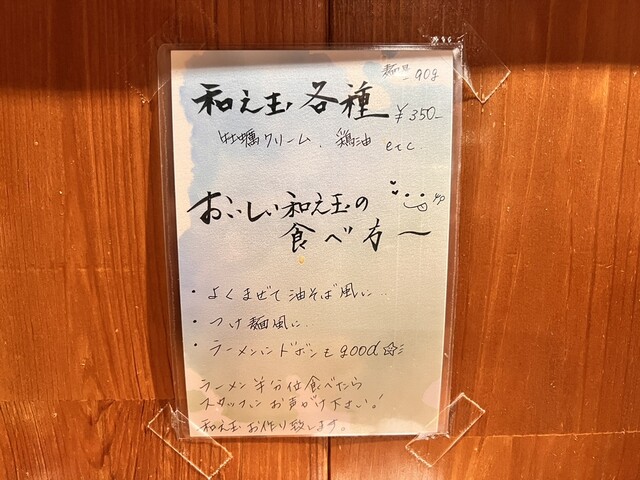 麺量 90g
和え玉 各種 ¥350-
牡蠣クリーム、鶏油 etc
おいしい和え玉の
食べ方〜
・よくまぜて油そば風に..
・つけ麺風に..
・ラーメンにドボンもgood☆ミ
ラーメン半分位食べたら
スタッフにお声がけ下さい!
和え玉お作り致します。